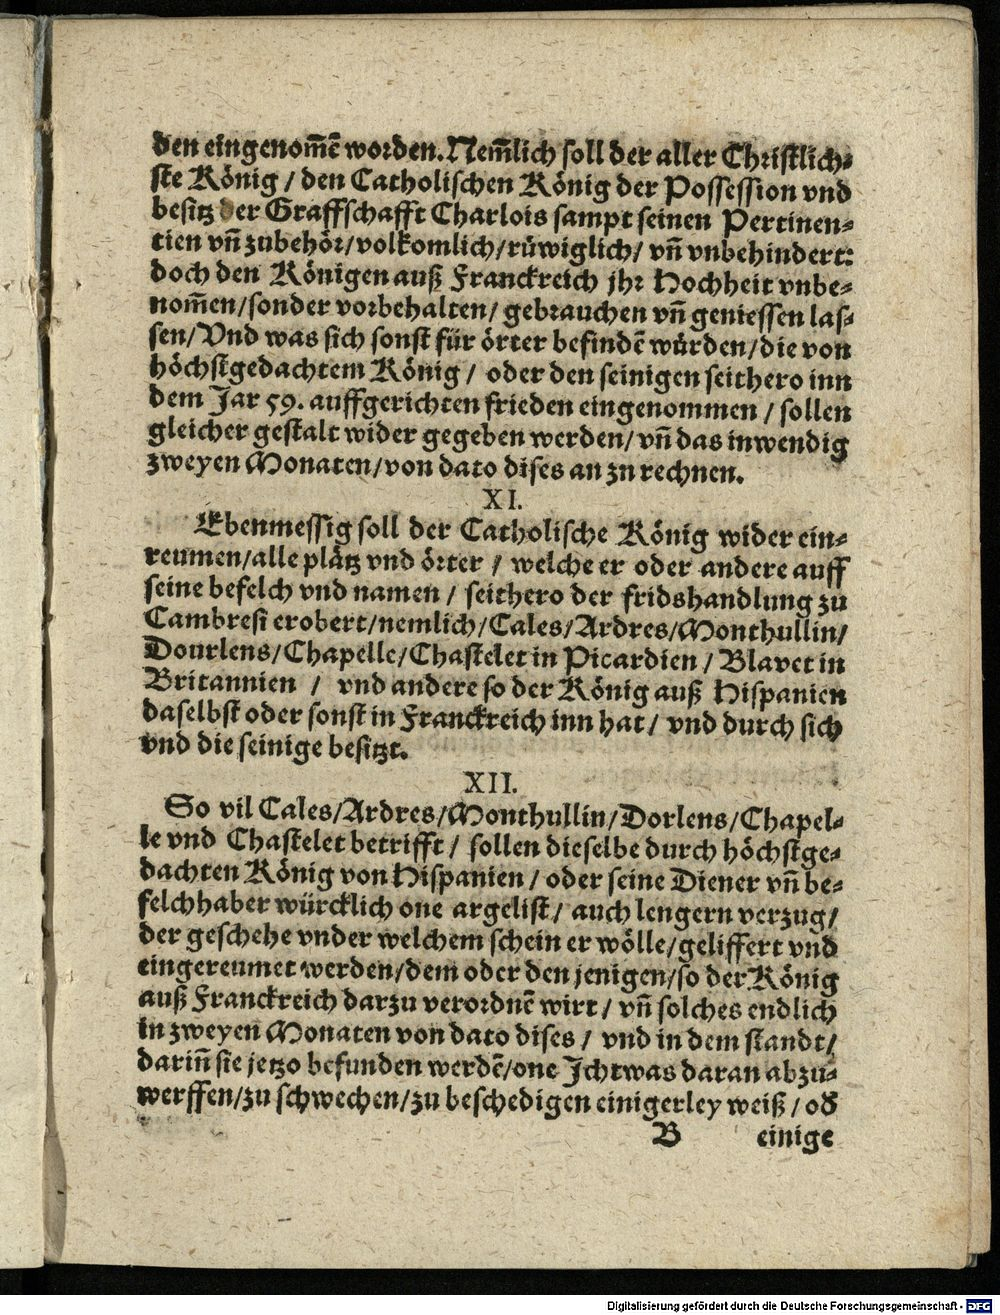 den eingenom̃ẽ worden. Nem̃lich soll der aller Christlich-
ste König / den Catholischen König der Possession vnd
besitz der Graffschafft Charlois sampt seinen Pertinen-
tien vñ zubehör/volkomlich/rüwiglich/ vñ vnbehindert:
doch den Königen auß Franckreich jhr Hochheit vnbe-
nom̃en/sonder vorbehalten/ gebrauchen vñ geniessen las-
sen/Vnd was sich sonst für örter befindẽ würden/die von
höchstgedachtem König / oder den seinigen seithero inn
dem Jar 59. auffgerichten frieden eingenommen / sollen
gleicher gestalt wider gegeben werden/ vñ das inwendig
zweyen Monaten/von dato dises an zu rechnen.
XI.
Ebenmessig soll der Catholische König wider ein-
reumen/alle plätz vnd örter / welche er oder andere auff
seine befelch vnd namen / seithero der fridshandlung zu
Cambresi erobert/nemlich/Cales/Ardres/Monthullin/
Dourlens/Chapelle/Chastelet in Picardien / Blavet in
Britannien / vnd andere so der König auß Hispanien
daselbst oder sonst in Franckreich inn hat/ vnd durch sich
vnd die seinige besitzt.
XII.
So vil Cales/Ardres/Monthullin/Dorlens/Chapel-
le vnd Chastelet betrifft / sollen dieselbe durch höchstge-
dachten König von Hispanien / oder seine Diener vñ be-
felchhaber würcklich one argelist/ auch lengern verzug/
der geschehe vnder welchem schein er wölle/geliffert vnd
eingereumet werden/dem oder den jenigen/so der König
auß Franckreich darzu verordnẽ wirt/ vñ solches endlich
in zweyen Monaten von dato dises / vnd in dem standt/
dariñ sie jetzo befunden werdẽ/one Ichtwas daran abzu-
werffen/zu schwechen/zu beschedigen einigerley weiß / od
B einige
Digitalisierung gefördert durch die Deutsche Forschungsgemeinschaft - DFG